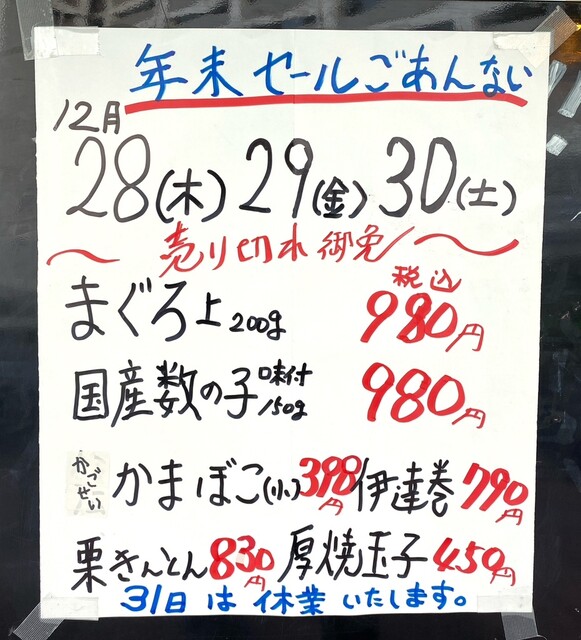 年末セールごあんない
12月
28(木) 29(金) 30(土)
〜売り切れ御免〜
税込
まぐろ上200g 980円
国産数の子味付150g 980円
かごせい かまぼこ(小)398円 伊達巻790円
栗きんとん830円 厚焼玉子450円
31日は休業いたします。